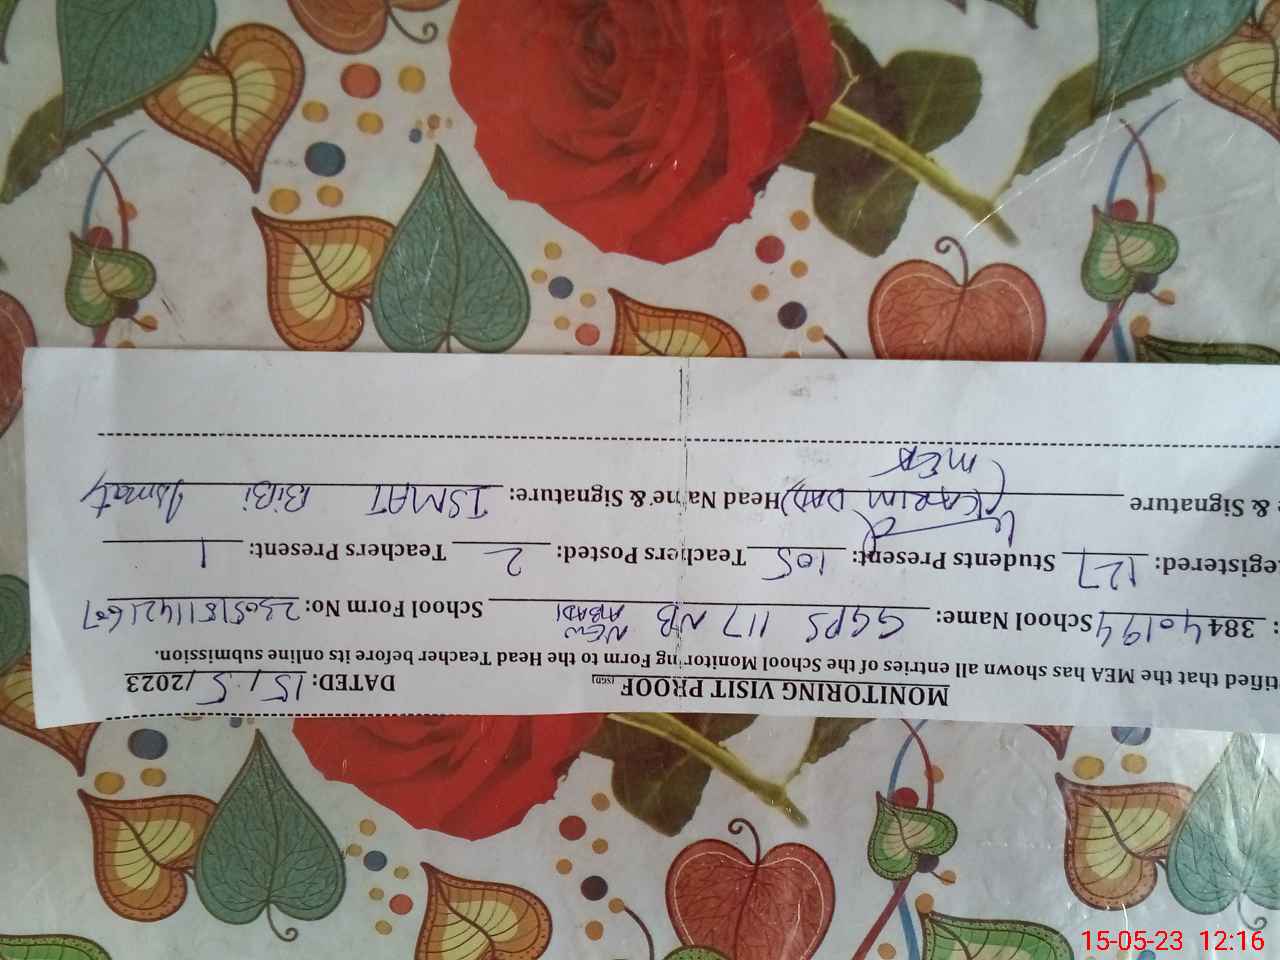 MONITORING VISIT PROOF [SGD] DATED: 15 / 5 /2023
tified that the MEA has shown all entries of the School Monitoring Form to the Head Teacher before its online submission.
: 38440194 School Name: GGPS 117 NB NEW ABADI School Form No:
egistered: 127 Students Present: 105 Teachers Posted: 2 Teachers Present: 1
e & Signature (KARIM DAD) Head Name & Signature: ISMAT BiBi Ismat
MEA
15-05-23 12:16